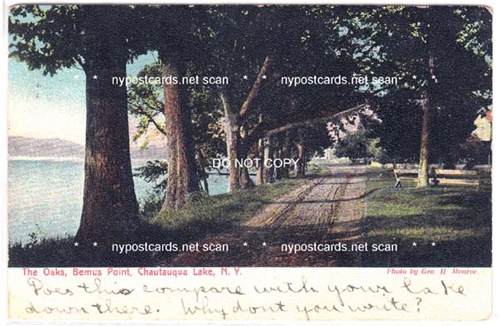 * nypostcards.net scan * nypostcards.net scan *
DO NOT COPY
* nypostcards.net scan * nypostcards.net scan *
The Oaks, Bemus Point, Chautauqua Lake, N. Y. Photo by Geo. H. Monroe.
Does this compare with your lake
down there. Why dont you write?